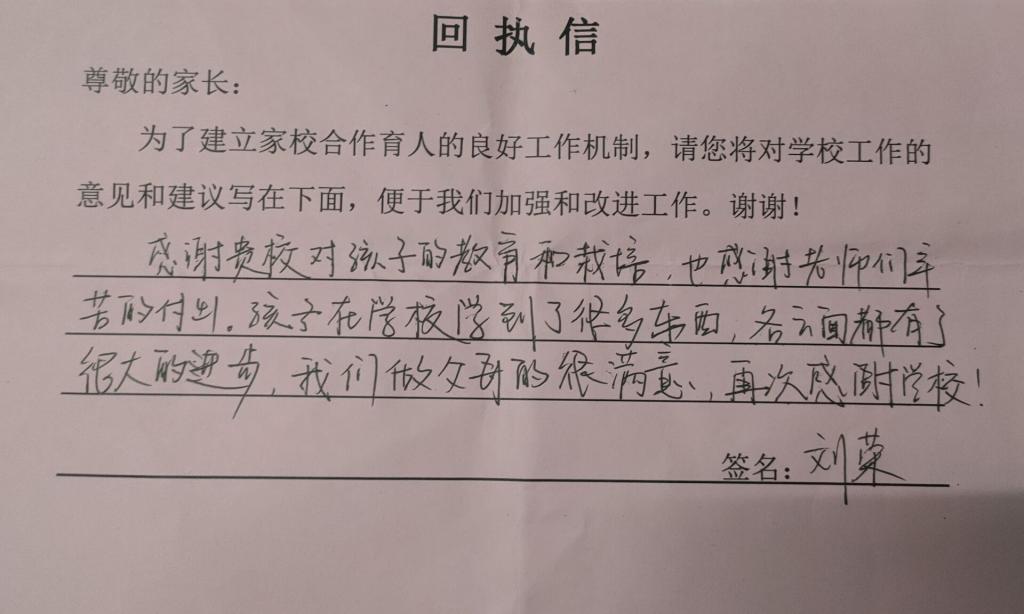 回执信
尊敬的家长：
为了建立家校合作育人的良好工作机制，请您将对学校工作的
意见和建议写在下面，便于我们加强和改进工作。谢谢！
感谢贵校对孩子的教育和栽培，也感谢老师们辛
苦的付出。孩子在学校学到了很多东西，各方面都有了
很大的进步，我们做父母的很满意，再次感谢学校！
签名：刘荣